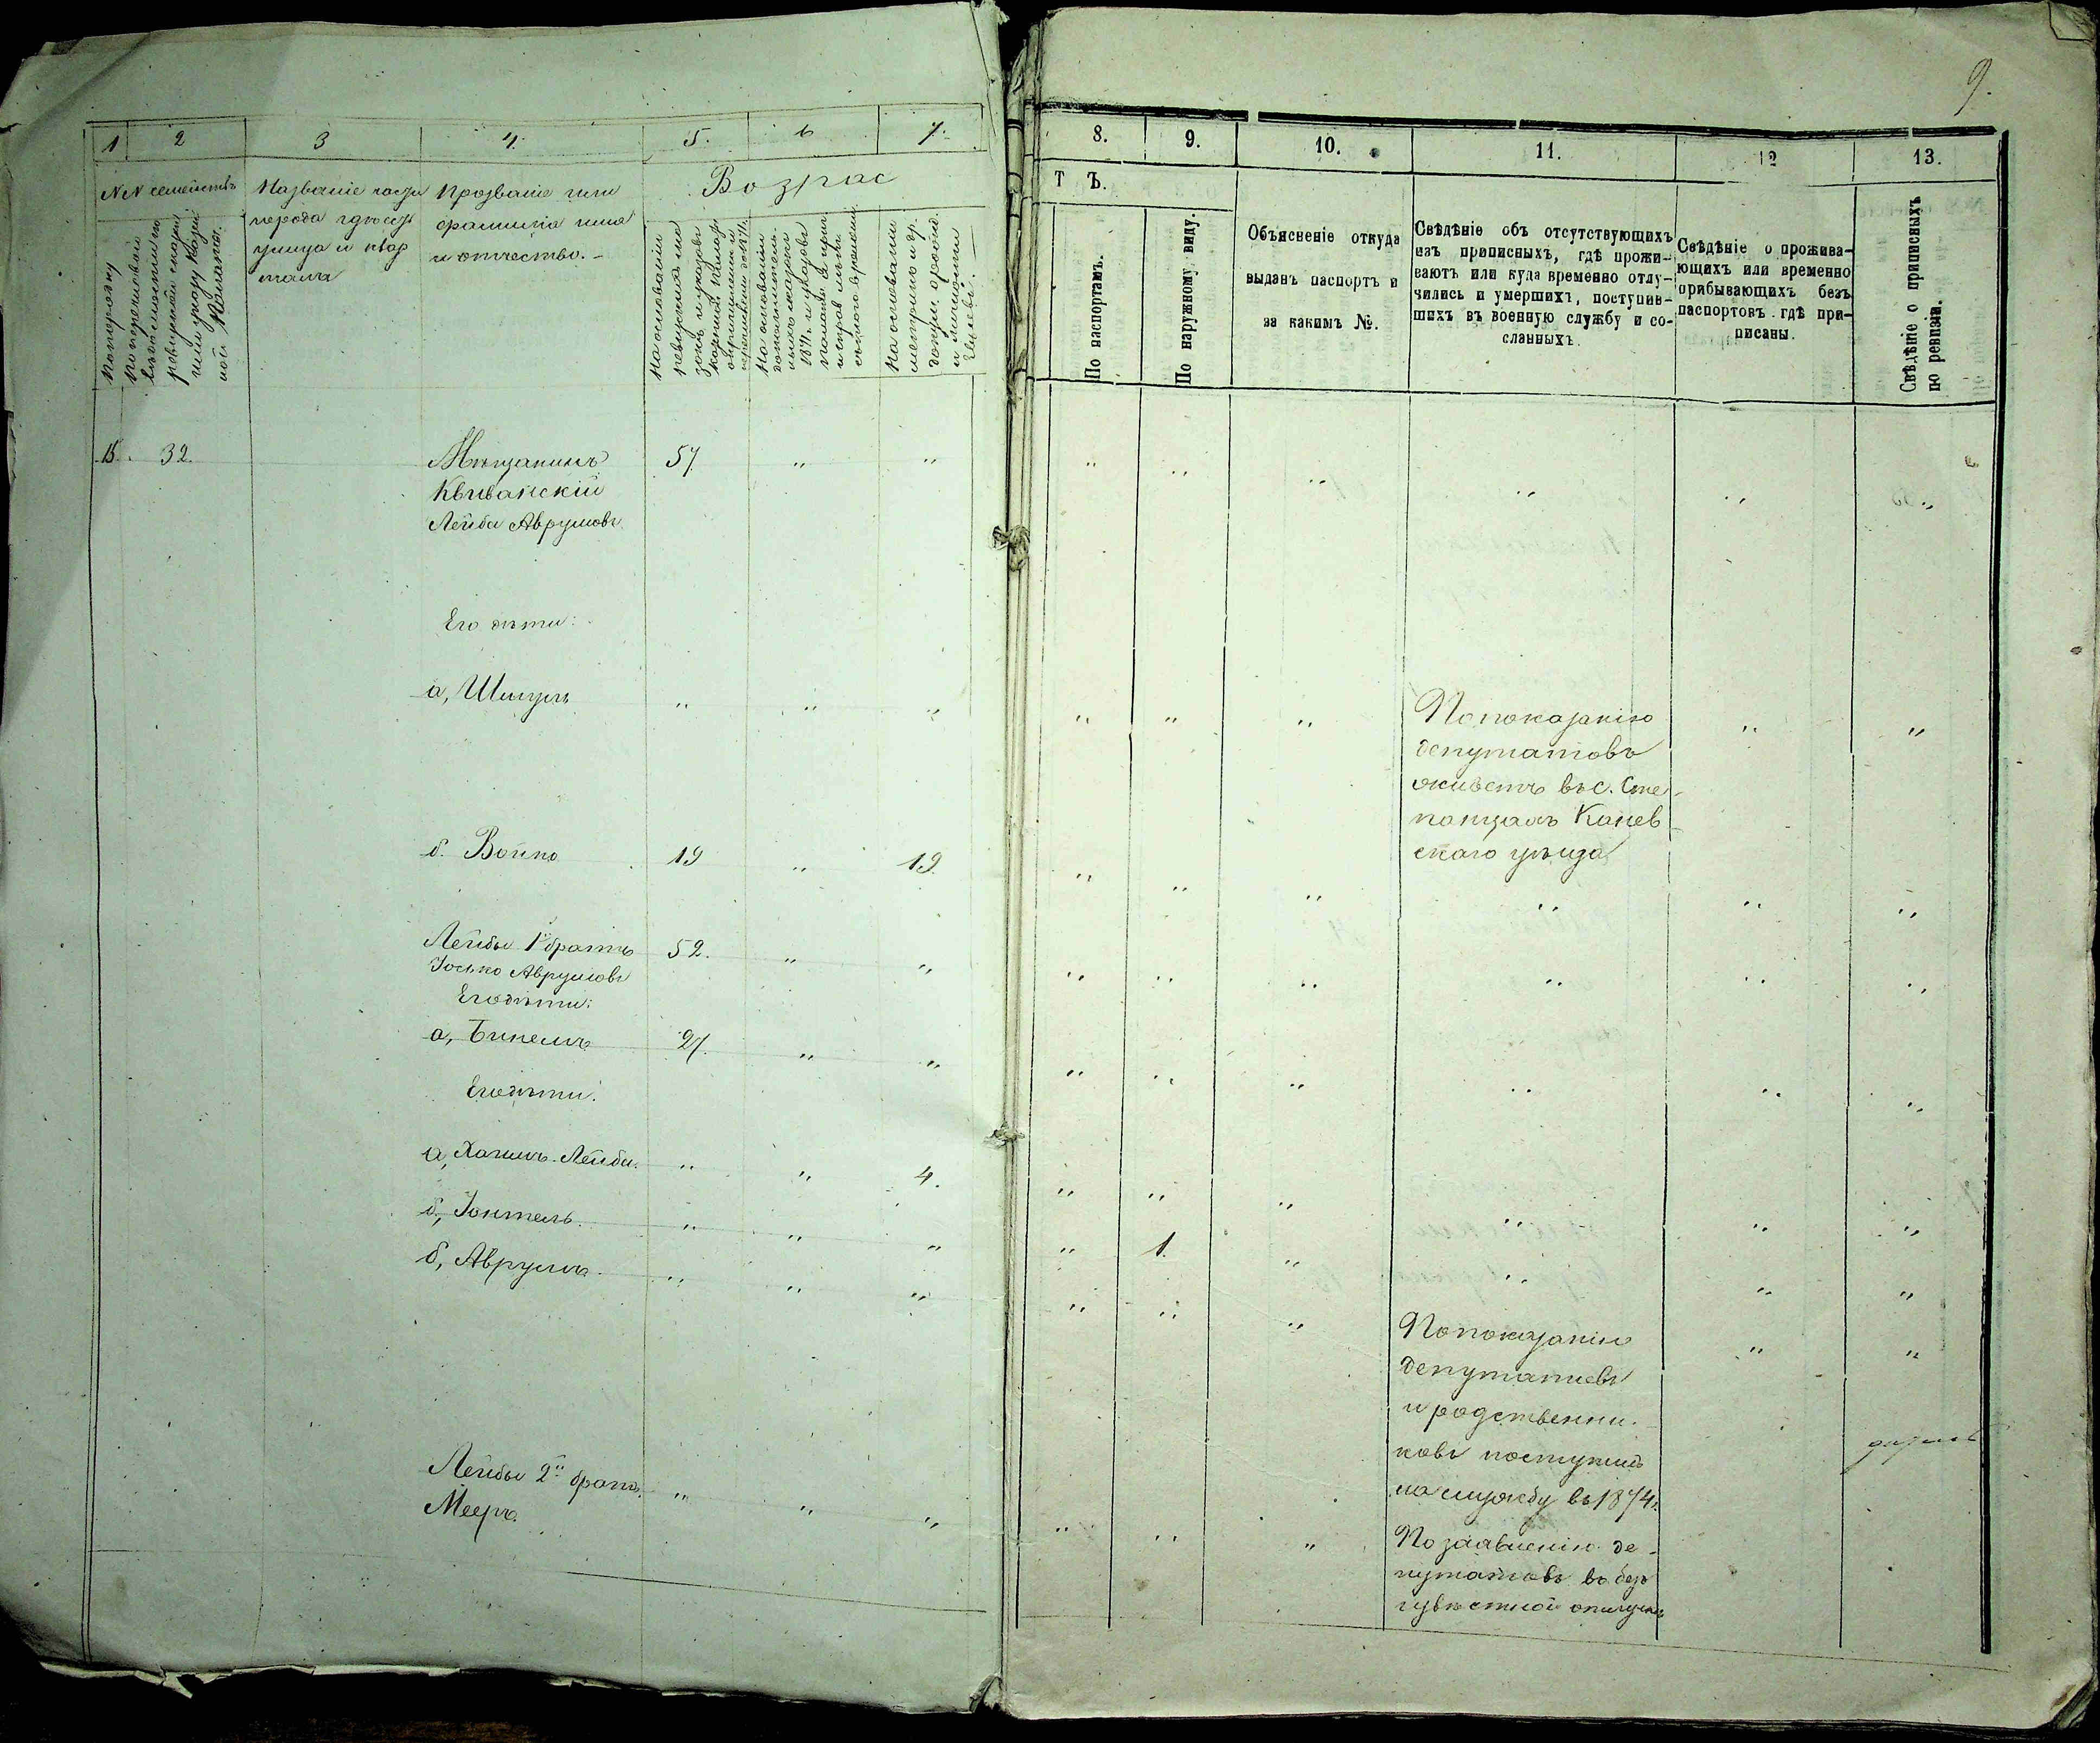 9.
1 2 3 4. 5. 6 7.
8. 9. 10. 11. 12 13.
NN семействъ
Названіе части
города гдѣ есть
улица и квар
тала
Прозваніе или
фамилія имя
и отчество. –
Возрас
Т Ъ.
По порядку
На основаніи
По паспортамъ.
По наружному виду.
Объясненіе откуда
выданъ паспортъ и
за какимъ №.
Свѣдѣніе объ отсутствующихъ
изъ приписныхъ, гдѣ прожи-
ваютъ или куда временно отлу-
чились и умершихъ, поступив-
шихъ въ военную службу и со-
сланныхъ.
Свѣдѣніе о прожива-
ющихъ или временно
прибывающихъ безъ
паспортовъ гдѣ при-
писаны.
Свѣдѣніе о приписныхъ
по ревизіи.
32. Мѣщанинъ 57 " "
Квиванскій
Лейба Аврумовъ
Его дѣти:
а, Шмуль " " "
По показанію
депутатовъ
живетъ въ с. Сте-
панцахъ Канев-
скаго уѣзда
б. Войко 19 " 19.
Лейбы 1й братъ 52. " "
Іосько Аврумовъ
Его дѣти:
а, Бинемъ 27. " "
Его дѣти:
а, Хаимъ-Лейба. " " 4.
б, Іонтель. " " " " 1.
б, Аврумъ. " " "
По показанію
депутатовъ
и родственни-
ковъ поступилъ
на службу въ 1874г.
Лейбы 2й братъ. " " "
Мееръ.
По заявленію де-
путатовъ въ без
извѣстной отлучкѣ